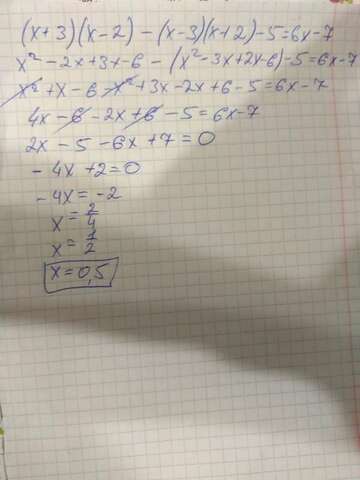 (x+3)(x-2)-(x-3)(x+2)-5=6x-7
x²-2x+3x-6-(x²-3x+2x-6)-5=6x-7
x²+x-6-x²+3x-2x+6-5=6x-7
4x-6-2x+6-5=6x-7
2x-5-6x+7=0
-4x+2=0
-4x=-2
x=2/4
x=1/2
x=0,5